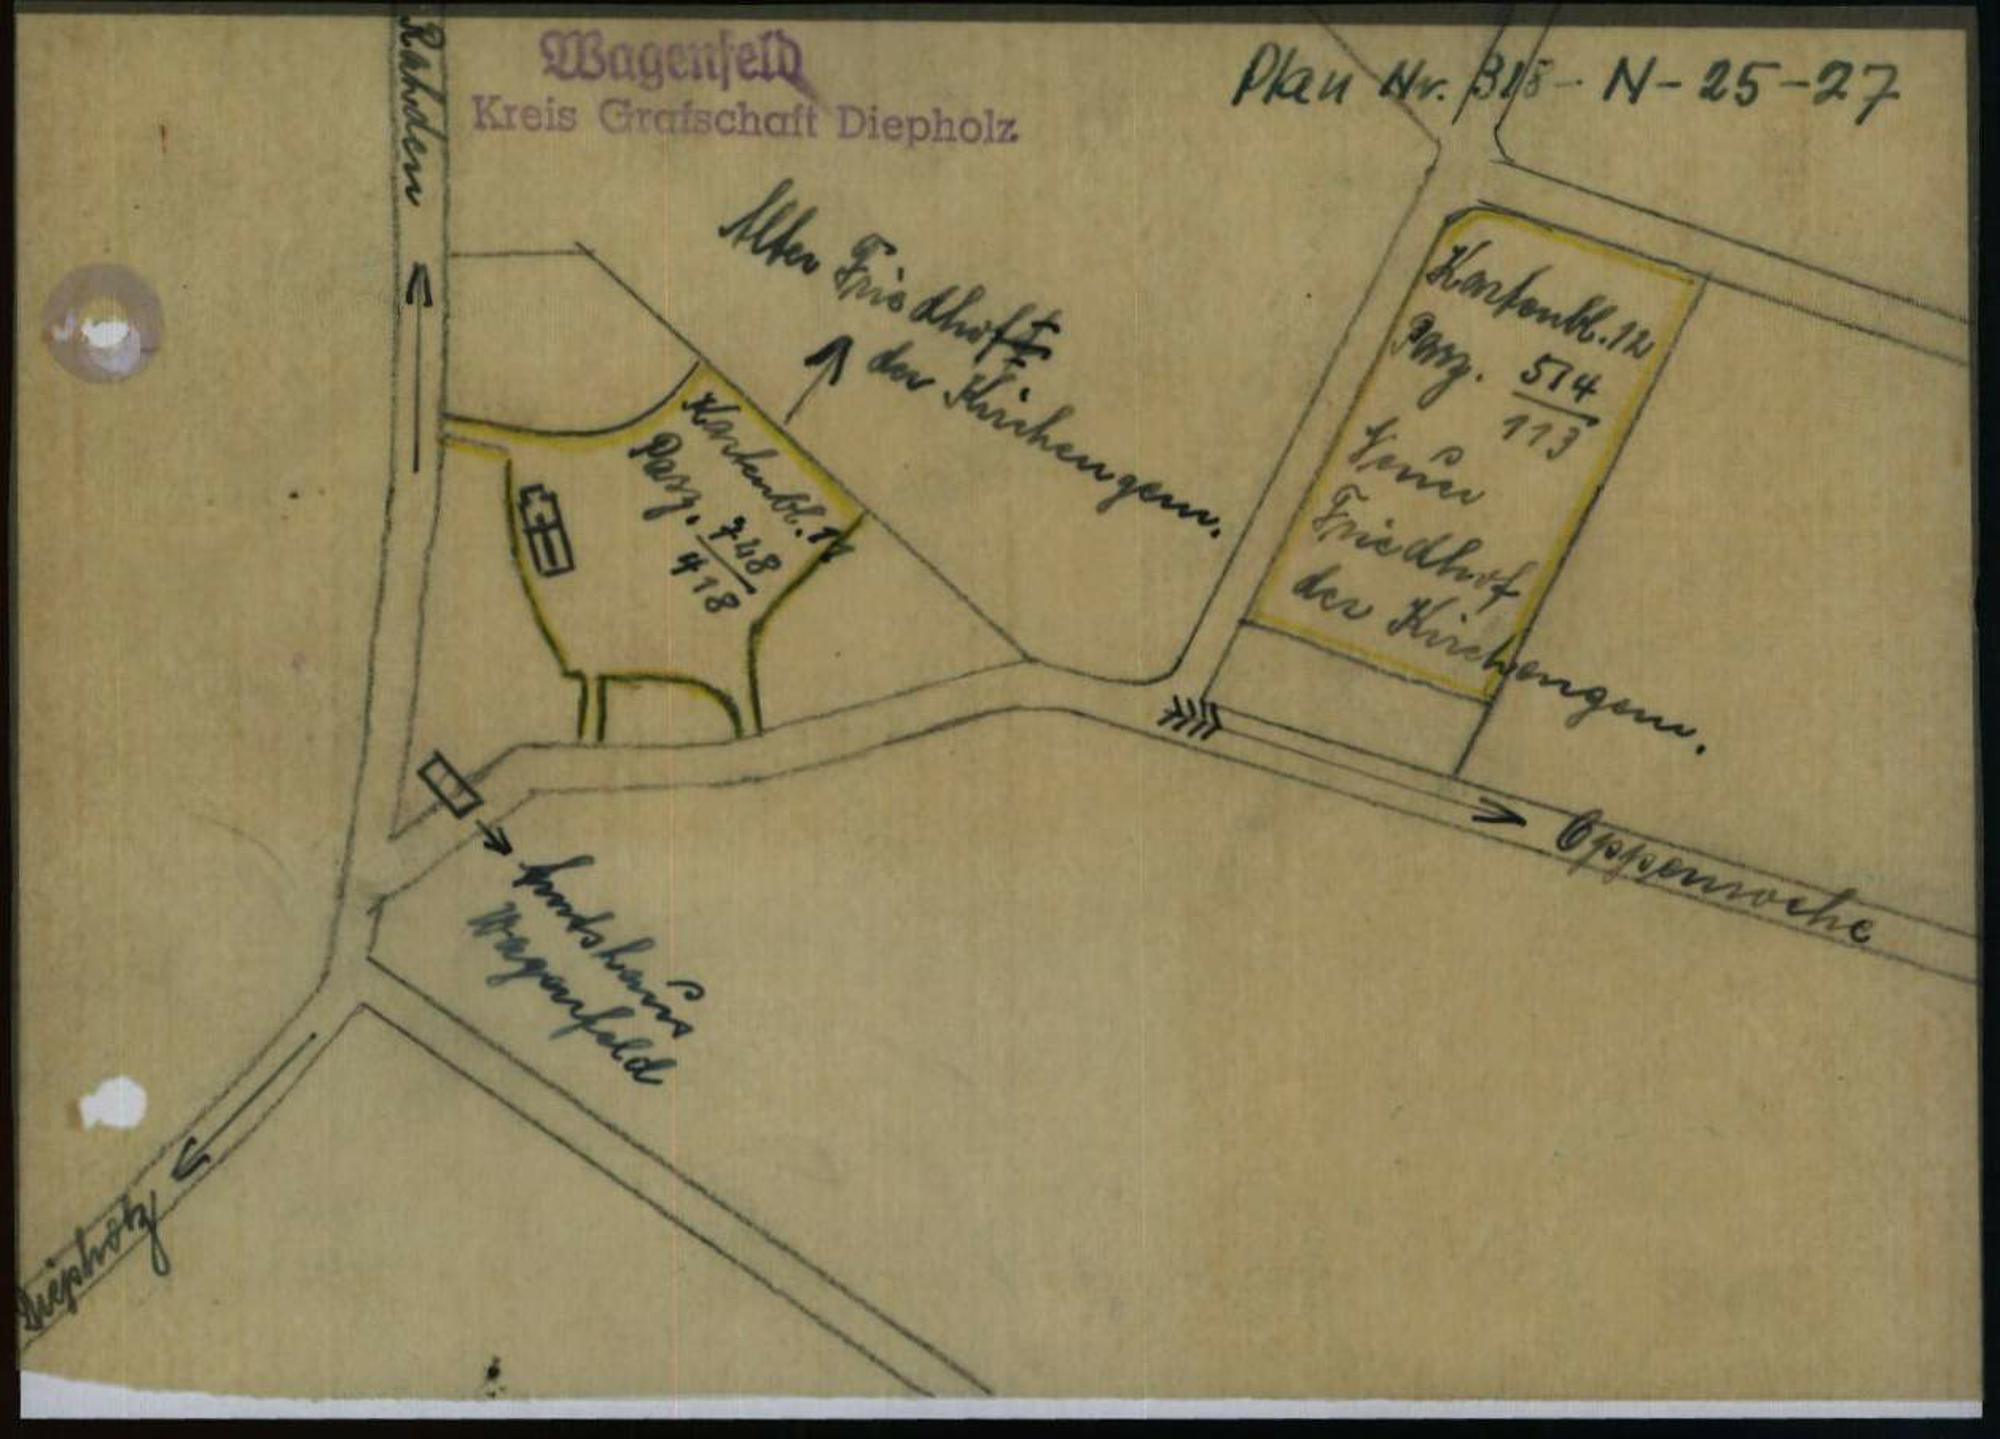 Wagenfeld
Kreis Grafschaft Diepholz
Plan Nr. 318 - N - 25 - 27
Rahden
Alter Friedhof
der Kirchengem.
Kartenbl. 12
Parz. 514
113
Neuer
Friedhof
der Kirchengem.
Kartenbl.
Parz. 748
418
Oppenwehe
Amtshaus
Wagenfeld
Diepholz